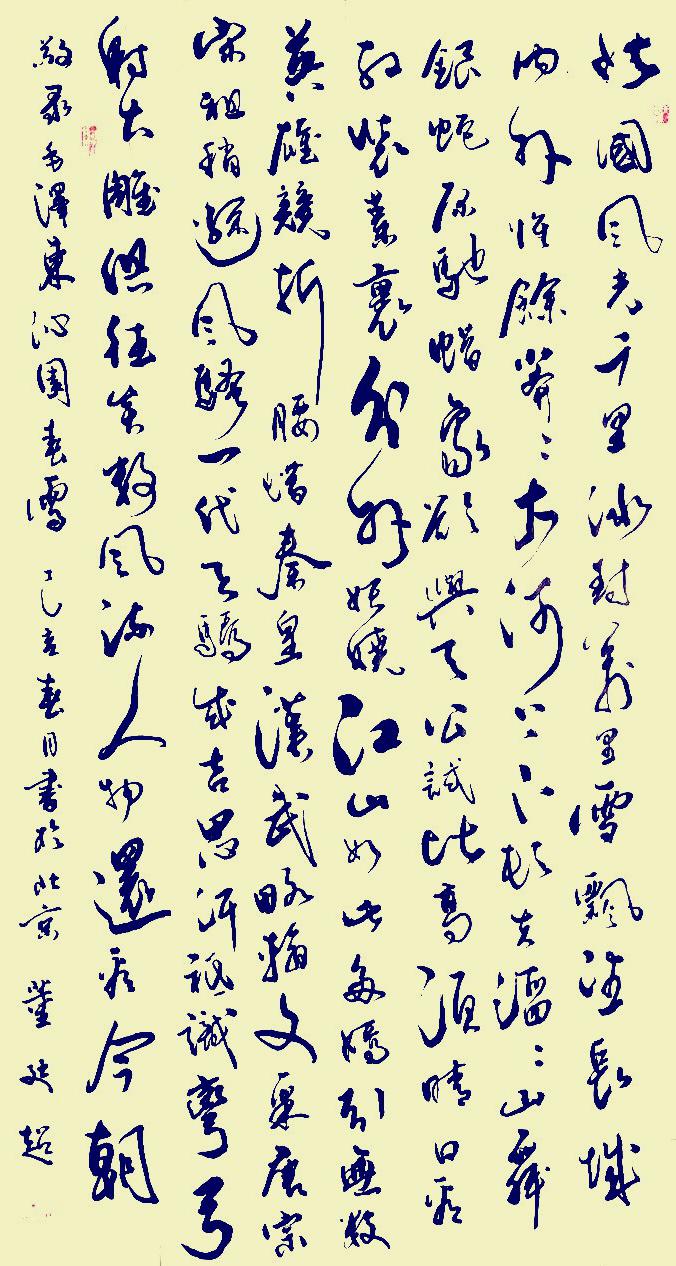 北國風光千里冰封萬里雪飄望長城
内外惟餘莽〻大河上下頓失滔〻山舞
銀蛇原馳蜡象欲與天公試比高須晴日看
紅裝素裹分外妖嬈江山如此多嬌引無數
英雄競折腰惜秦皇漢武略輸文采唐宗
宋祖稍遜風騷一代天驕成吉思汗祗識彎弓
射大雕俱往矣數風流人物還看今朝
敬录毛澤東沁園春雪 己亥春月書於北京 董超